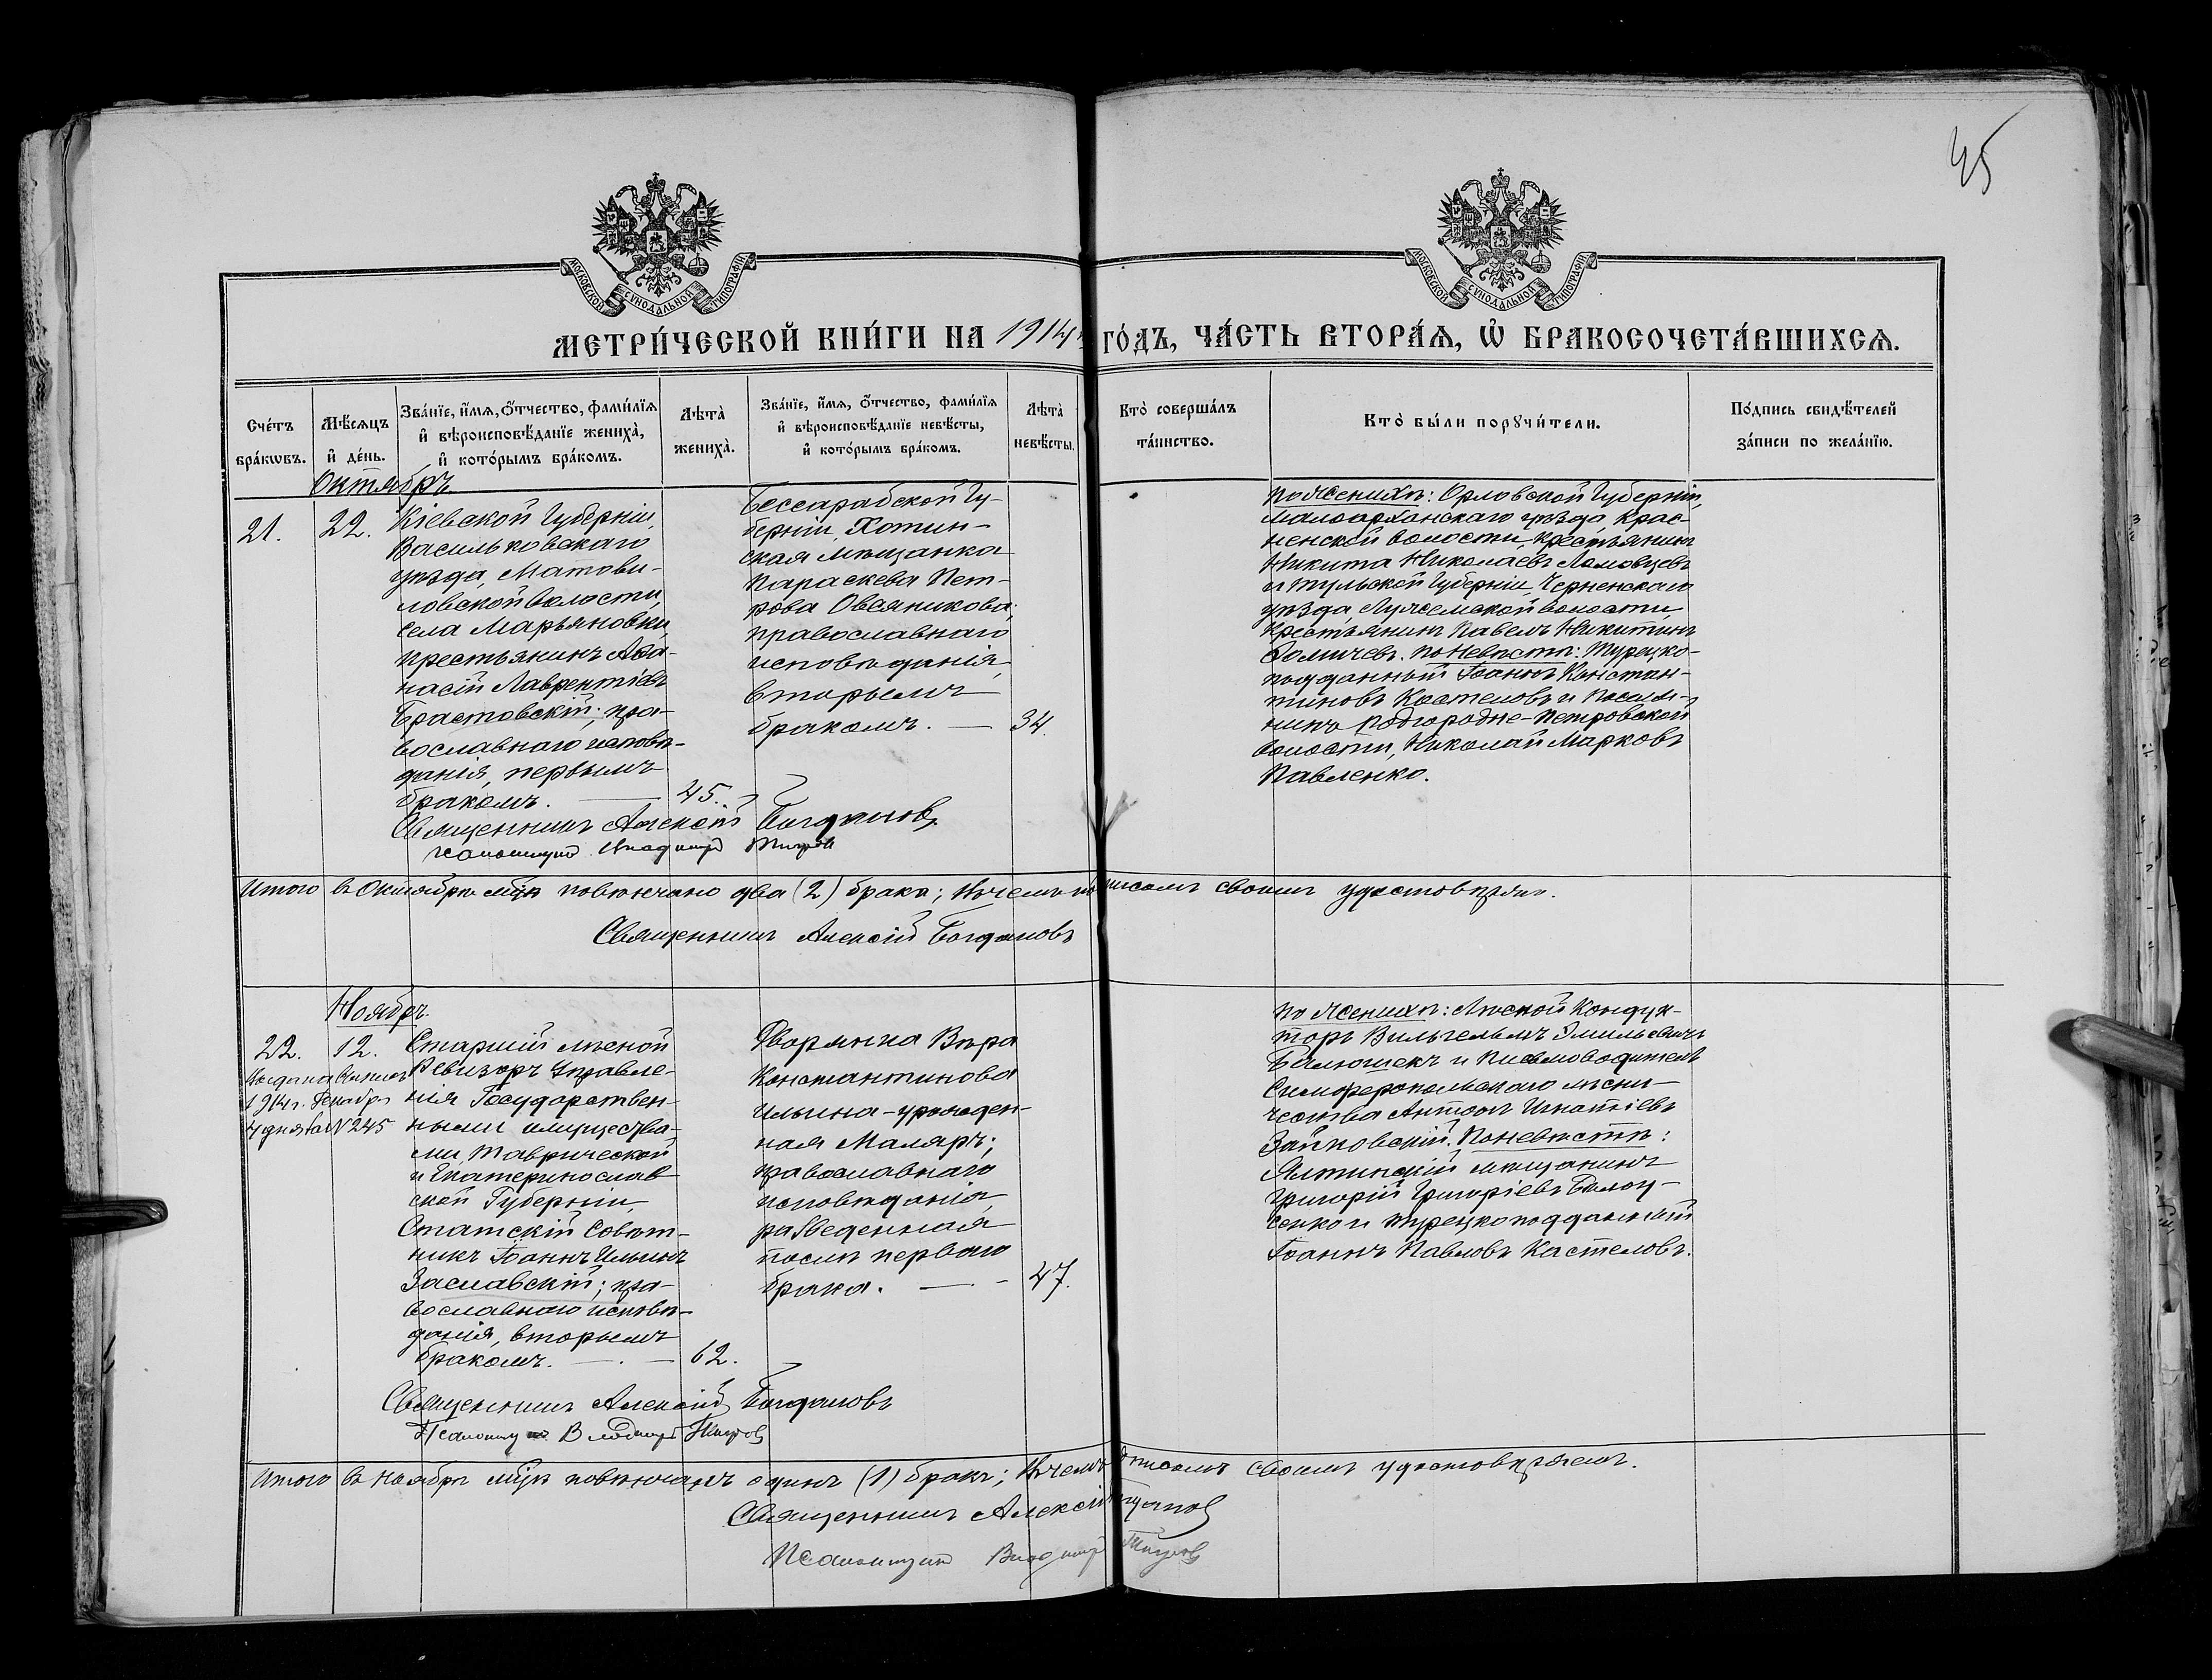 45
МОСКОВСКОЙ СѴНОДАЛЬНОЙ ТИПОГРАФІИ
МОСКОВСКОЙ СѴНОДАЛЬНОЙ ТИПОГРАФІИ
МЕТРИ́ЧЕСКОЙ КНИ́ГИ НА 1914 ГО́ДЪ, ЧА́СТЬ ВТОРА́Ѧ, Ѡ҆ БРАКОСОЧЕТА́ВШИХСѦ.
Сче́тъ
бра́кѡвъ.
Мѣ́сѧцъ
и҆ де́нь.
Зва́нїе, и҆́мѧ, ѻ҆́тчество, фами́лїѧ
и҆ вѣроисповѣ́данїе жениха̀,
и҆ кото́рымъ бра́комъ.
Лѣта̀
жениха̀.
Зва́нїе, и҆́мѧ, ѻ҆́тчество, фами́лїѧ
и҆ вѣроисповѣ́данїе невѣ́сты,
и҆ кото́рымъ бра́комъ.
Лѣта̀
невѣ́сты.
Кто̀ соверша́лъ
та́инство.
Кто̀ бы́ли порꙋчи́тели.
По́дпись свидѣ́телей
за́писи по жела́нїю.
Октябрь.
21.
22.
Кіевской Губерніи,
Васильковскаго
уѣзда, Матови-
ловской волости,
села Марьяновки,
крестьянинъ Афа-
насій Лаврентіевъ
Брастовскій; пра-
вославнаго исповѣ-
данія, первымъ
бракомъ. — 45.
Бессарабской Гу-
берніи, Хотин-
ская мѣщанка
Параскева Пет-
рова Овсяникова;
православнаго
исповѣданія,
вторымъ
бракомъ. — 34.
По женихѣ: Орловской Губерніи,
Малоархангскаго уѣзда, Крас-
ненской волости, крестьянинъ
Никита Николаевъ Ломовцевъ
и Тульской Губерніи, Черненскаго
уѣзда, волости,
крестьянинъ Павелъ Никитинъ
Фомичевъ. По невѣстѣ: Турецко-
подданный Іоаннъ Констан-
тиновъ Костеловъ и поселя-
нинъ Подгородне-Петровской
волости, Николай Марковъ
Павленко.
Священникъ Алексій Богдановъ
Псаломщикъ Владиміръ
Итого въ Октябрѣ мѣсяцѣ повѣнчано два (2) брака; въ чемъ подписомъ своимъ удостовѣряю.
Священникъ Алексій Богдановъ
Ноябрь.
22.
12.
Выдана выпись
1914 г. Декабря
7 дня за № 245
Старшій лѣсной
Ревизоръ Управле-
нія Государствен-
ными имущества-
ми, Таврической
и Екатеринослав
ской Губерніи,
Статскій Совѣт-
никъ Іоаннъ Ильинъ
Заславскій; пра-
вославнаго исповѣ-
данія, вторымъ
бракомъ. — 62.
Дворянка Вѣра
Константинова
Ильина-урожден-
ная Маляръ;
православнаго
исповѣданія,
разведенная
послѣ перваго
брака. — 47.
По женихѣ: Лѣсной Кондук-
торъ Вильгельмъ Эмильевичъ
Балюшекъ и письмоводитель
Симферопольскаго лѣсни-
чества Антонъ Игнатіевъ
Зайковскій. По невѣстѣ:
Ялтинскій мѣщанинъ
Григорій Григоріевъ Бѣлоу-
сенко и турецкоподданный
Іоаннъ Павловъ Костеловъ.
Священникъ Алексій Богдановъ
Псаломщикъ Владиміръ
Итого въ Ноябрѣ мѣсяцѣ повѣнчанъ одинъ (1) бракъ; въ чемъ подписомъ своимъ удостовѣряемъ.
Священникъ Алексій Богдановъ
Псаломщикъ Владиміръ